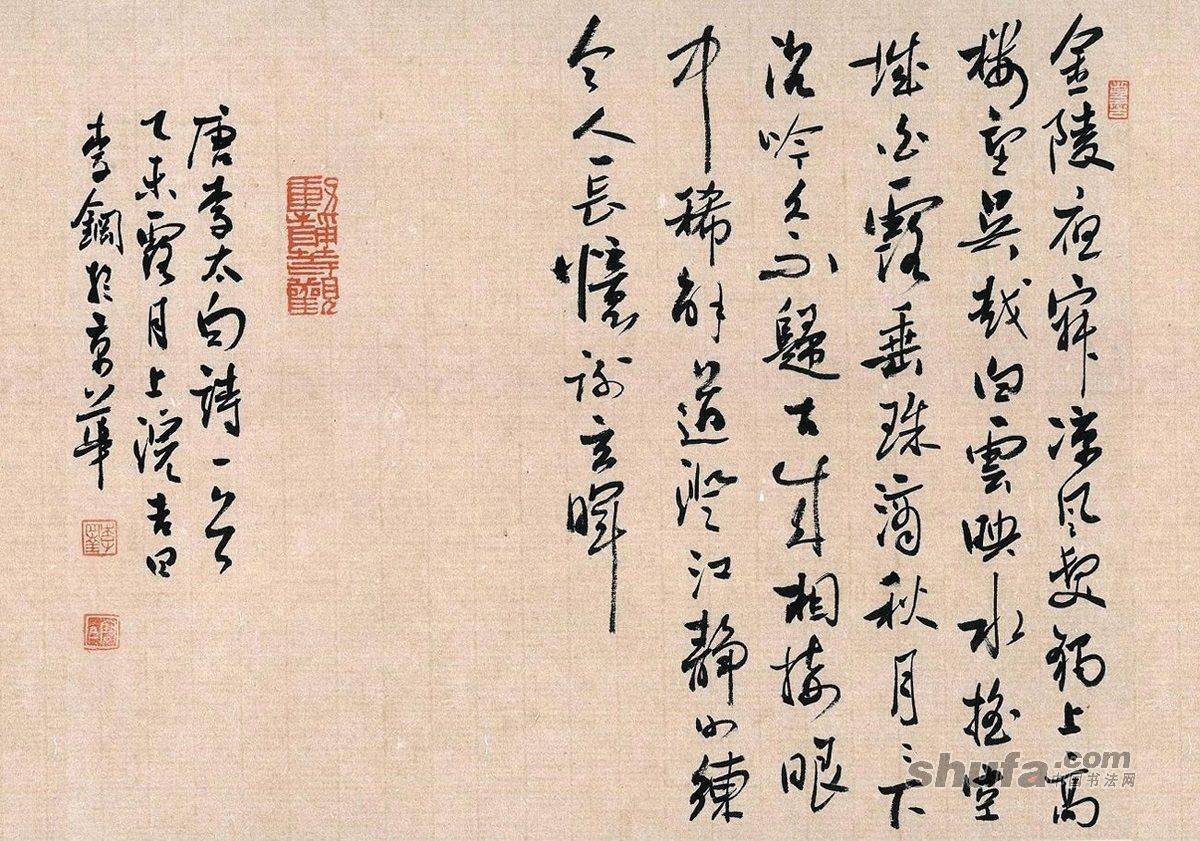 金陵夜寂凉風發獨上高
樓望吳越白雲映水摇空
城白露垂珠滴秋月〻下
沉吟久不歸古來相接眼
中稀解道澄江靜如練
令人長憶謝玄暉
唐李太白詩一首
乙未露月上浣吉日
李鋼於京華
shufa.com
中国书法网